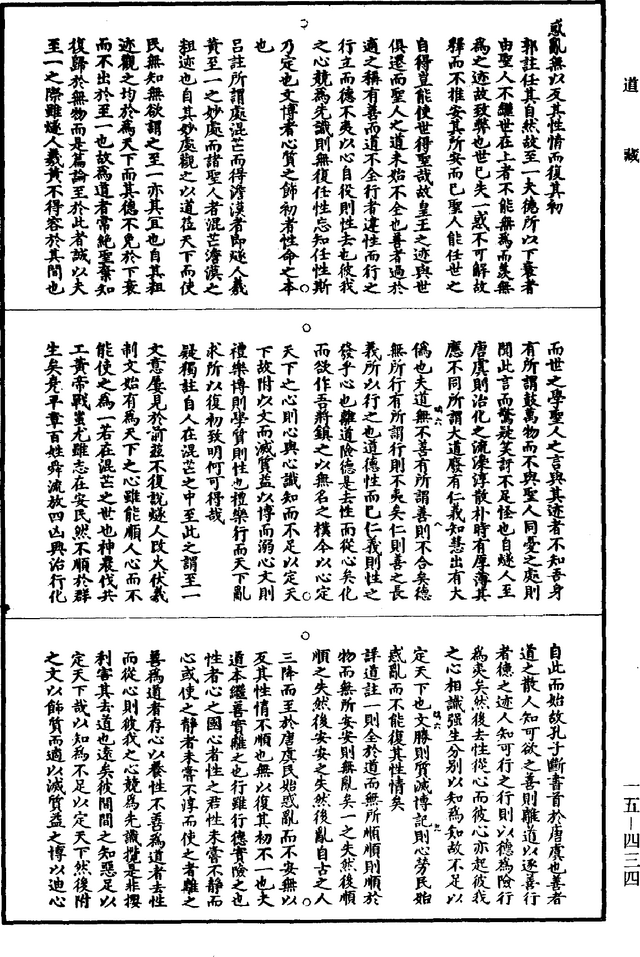 道藏
惑亂無以反其性情而復其初
郭註任其自然故至一夫德所以下衰者
由聖人不繼世在上者不能無為而羨無
為之迹故致弊也世已失一惑不可解故
釋而不推安其所安而已聖人能任世之
自得豈能使世得聖哉故皇王之迹與世
俱遷而聖人之道未始不全也善者過於
適之稱有善而道不全行者違性而行之
行立而德不夷以心自役則性去也彼我
之心競為先識則無復任性忘知任性斯
乃定也文博者心質之飾初者性命之本
也
呂註所謂處混芒而得澹漠者即燧人羲
黃至一之妙處而諸聖人者混芒澹漠之
粗迹也自其妙處觀之以道莅天下而使
民無知無欲謂之至一亦其宜也自其粗
迹觀之均於為天下而其德不免於下衰
而不出於至一也故為道者常絶聖棄知
復歸於無物而是篇論至於此者誠以夫
至一之際雖燧人羲黃不得容於其間也
而世之學聖人之言與其迹者不知吾身
有所謂鼓萬物而不與聖人同憂之處則
聞此言而驚疑笑訝不足怪也自燧人至
唐虞則治化之流澆淳散朴時有厚薄其
應不同所謂大道廢有仁義知慧出有大
偽也夫道無不善有所謂善則不合矣德
無所行有所謂行則不夷矣仁則善之長
義所以行之也道德性而已仁義則性之
發乎心也離道險德是去性而從心矣化
而欲作吾將鎮之以無名之樸今以心定
天下之心則心與心識知而不足以定天
下故附以文而滅質益以博而溺心文則
禮樂博則學質則性也禮樂行而天下亂
求所以復初致明何可得哉
疑獨註自人在混芒之中至此之謂至一
文意屢見於前茲不復說燧人改火伏羲
制文始有為天下之心雖能順人心而不
能使之為一若在混芒之世也神農伐共
工黃帝戰蚩尤雖志在安民然不順於群
生矣堯平章百姓舜流放四凶興治行化
自此而始故孔子斷書首於唐虞也善者
道之散人知可欲之善則離道以逐善行
者德之迹人知可行之行則以德為險行
為夷矣然後去性從心而彼心亦起彼我
之心相識强生分別以知為知故不足以
定天下也文勝則質滅博記則心勞民始
惑亂而不能復其性情矣
詳道註一則全於道而無所順順則順於
物而無所安安則無亂矣一之失然後順
順之失然後安安之失然後亂自古之人
三降而至於唐虞民始惑亂而不安無以
反其性情不順也無以復其初不一也夫
道本繼善實離之也行雖行德實險之也
性者心之國心者性之君性未嘗不靜而
心或使之靜者未嘗不淳而使之者離之
善為道者存心以養性不善為道者去性
而從心則彼我之心競為先識攬是非擇
利害其去道也遠矣彼間間之知惡足以
定天下哉以知為不足以定天下然後附
之文以飾質而適以滅質益之博以迪心
一五—四三四